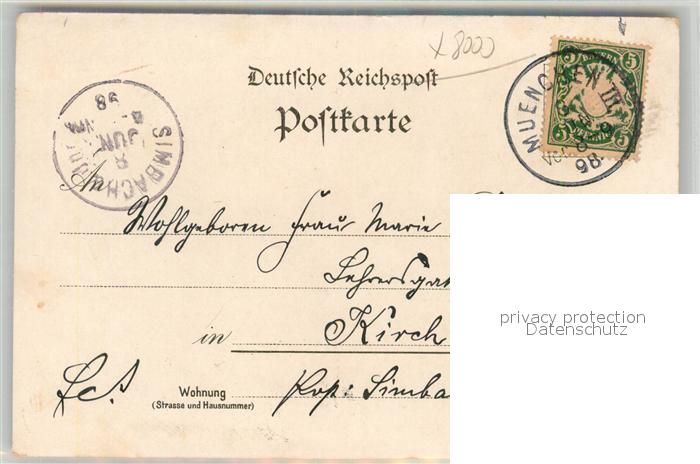 x 8000
Deutsche Reichspost
Postkarte
5 5
BAYERN
MUENCHEN III
98
SIMBACH
8 JUN
98
An
Wohlgeboren Frau Marie
Lehrersgat
in Kirch
Wohnung
(Strasse und Hausnummer)
Post: Simba
privacy protection
Datenschutz